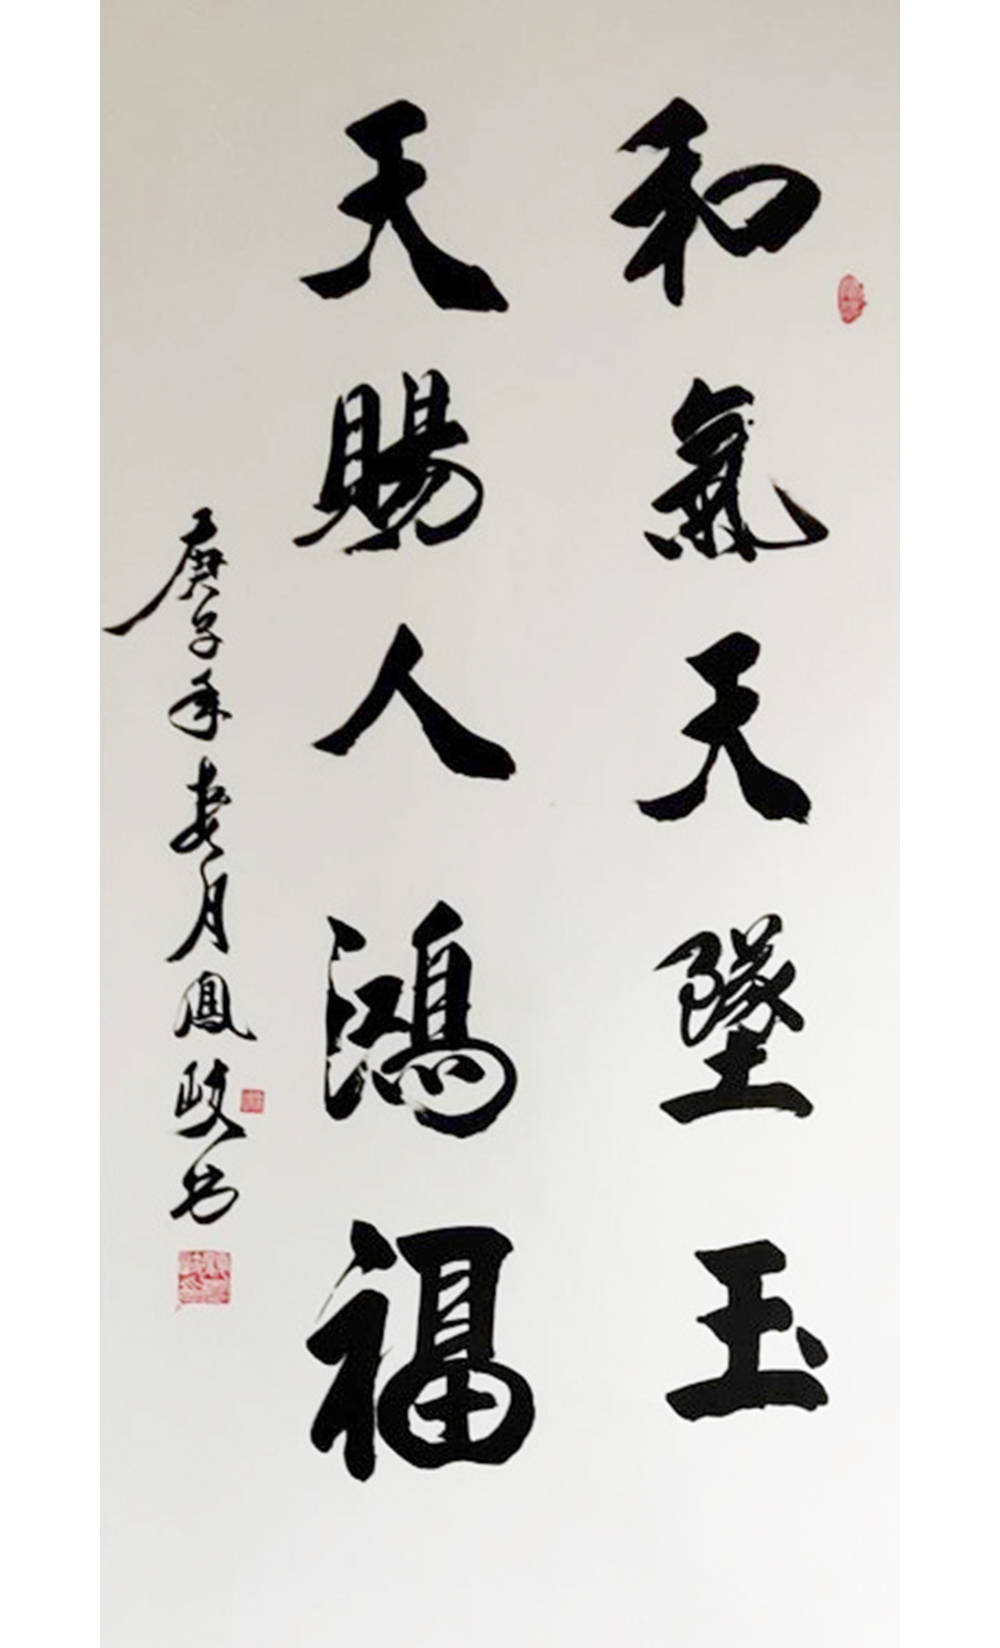 和氣天墜玉
天賜人鴻福
庚子年 月鳳岐书